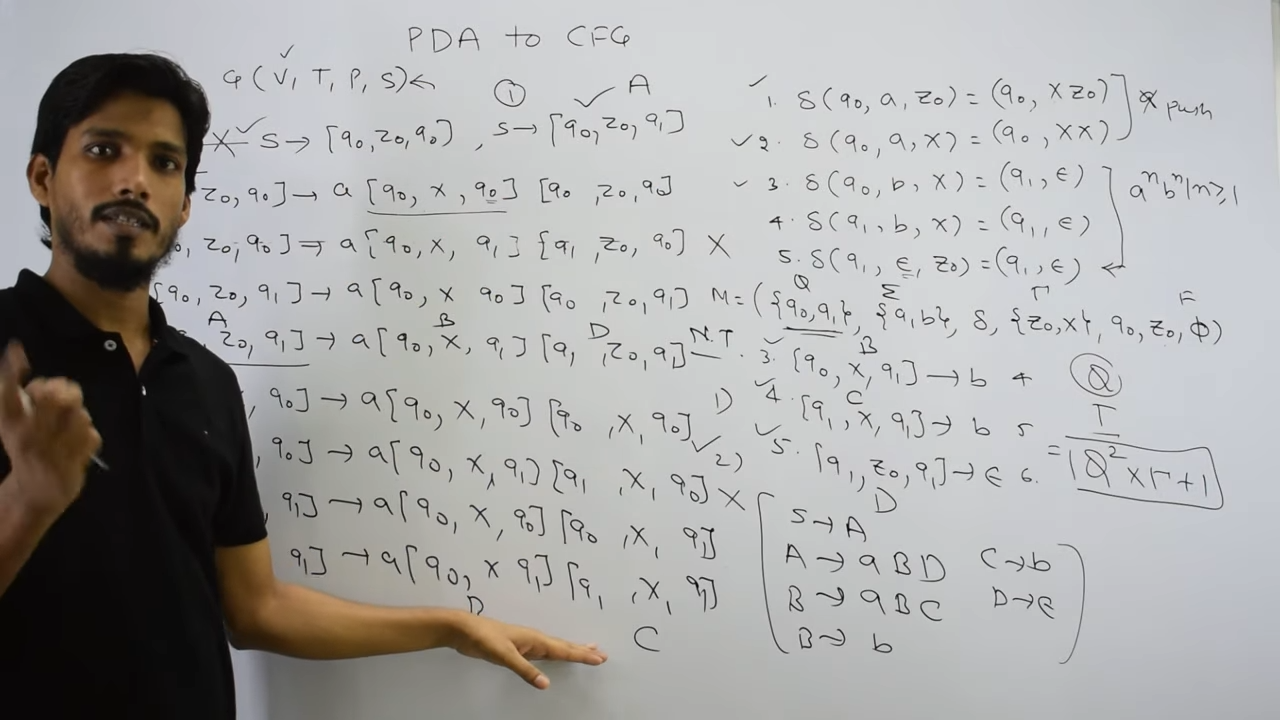 PDA to CFG
G (V, T, P, S) ←
① A
X ✓ S → [q0, z0, q0] , S → [q0, z0, q1]
z0, q0] → a [q0, x, q0] [q0, z0, q0]
q0, z0, q0] → a [q0, x, q1] [q1, z0, q0] X
[q0, z0, q1] → a [q0, x q0] [q0, z0, q1]
A B D
z0, q1] → a [q0, x, q1] [q1, z0, q1] N.T
x, q0] → a [q0, x, q0] [q0, x, q0] 1)
, q0] → a [q0, x, q1] [q1, x, q0] X 2)
q1] → a [q0, x, q0] [q0, x, q1]
q1] → a [q0, x q1] [q1, x, q1]
B C
✓ 1. δ(q0, a, z0) = (q0, xz0)
push
✓ 2. δ(q0, a, x) = (q0, xx)
✓ 3. δ(q0, b, x) = (q1, ε)
aⁿbⁿ|n≥1
4. δ(q1, b, x) = (q1, ε)
5. δ(q1, ε, z0) = (q1, ε) ←
Q Σ Γ F
M = ({q0, q1}, {a, b}, δ, {z0, x}, q0, z0, φ)
B
✓ 3. [q0, x, q1] → b 4
C
✓ 4. [q1, x, q1] → b 5
✓ 5. [q1, z0, q1] → ε 6.
D
Q
T
= |Q² × Γ + 1
S → A
A → aBD C → b
B → aBC D → ε
B → b